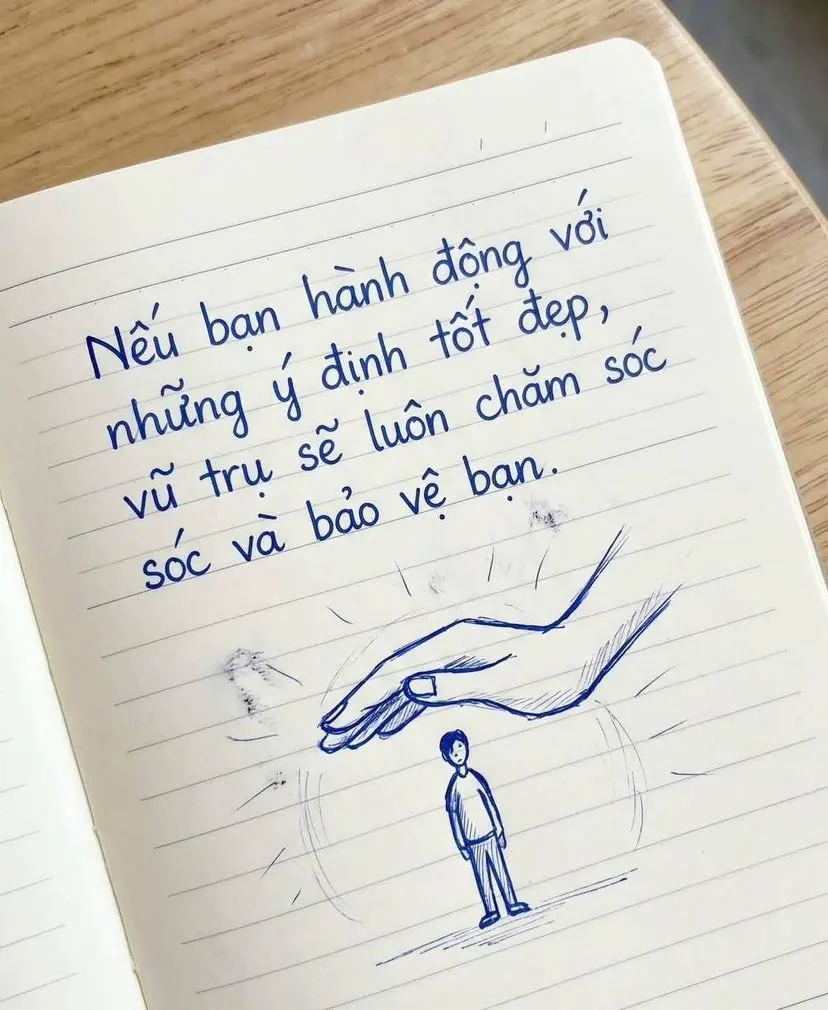 Nếu bạn hành động với
những ý định tốt đẹp,
vũ trụ sẽ luôn chăm sóc
sóc và bảo vệ bạn.